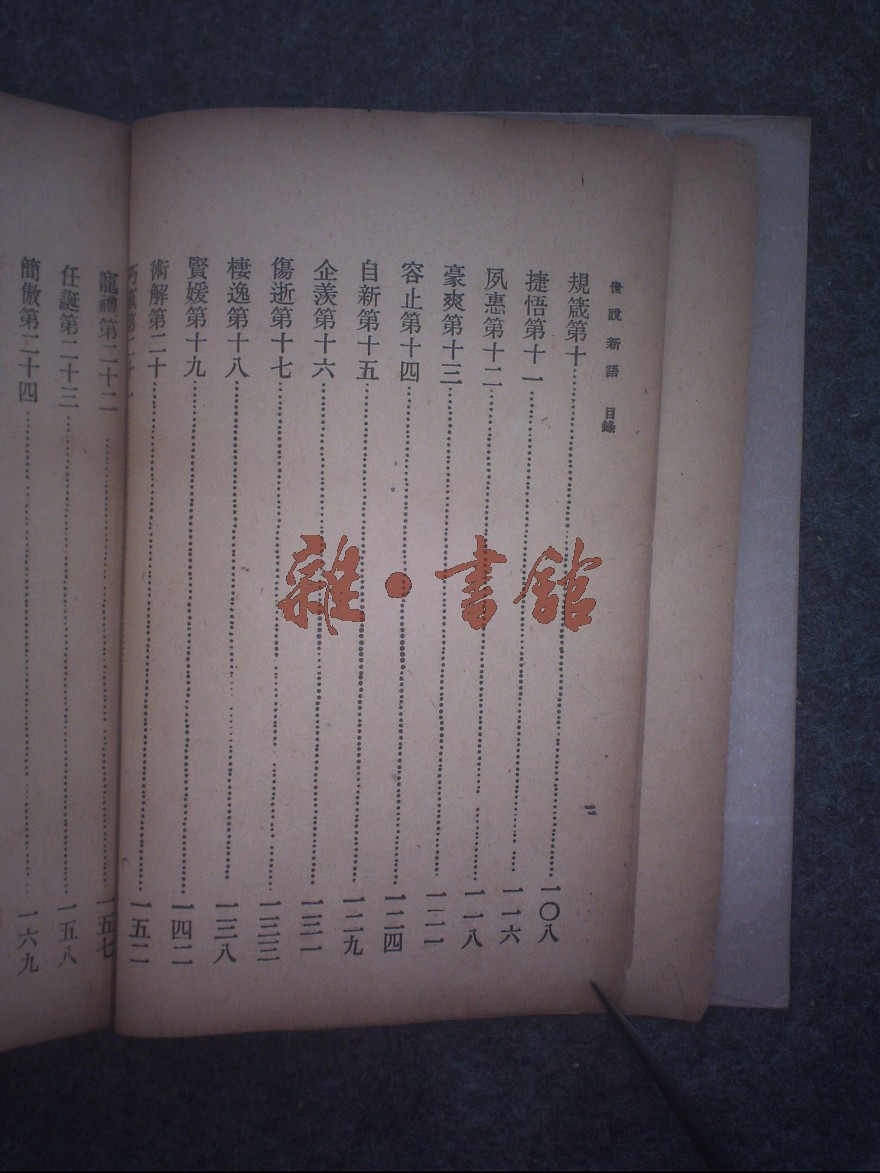 世說新語 目錄
二
規箴第十……一〇八
捷悟第十一……一一六
夙惠第十二……一一八
豪爽第十三……一二一
容止第十四……一二四
自新第十五……一二九
企羨第十六……一三一
傷逝第十七……一三三
棲逸第十八……一三八
賢媛第十九……一四二
術解第二十……一五二
寵禮第二十二……一五七
任誕第二十三……一五八
簡傲第二十四……一六九
雜·書館